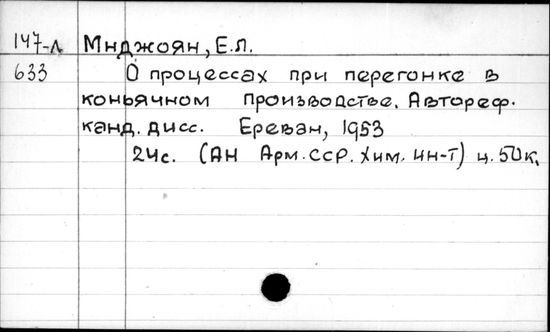 147-Л Мнджоян, Е.Л.
633 О процессах при перегонке в
коньячном производстве. Автореф.
канд. дисс. Ереван, 1953
24с. (АН Арм. ССР. Хим. ин-т) ц. 50к.